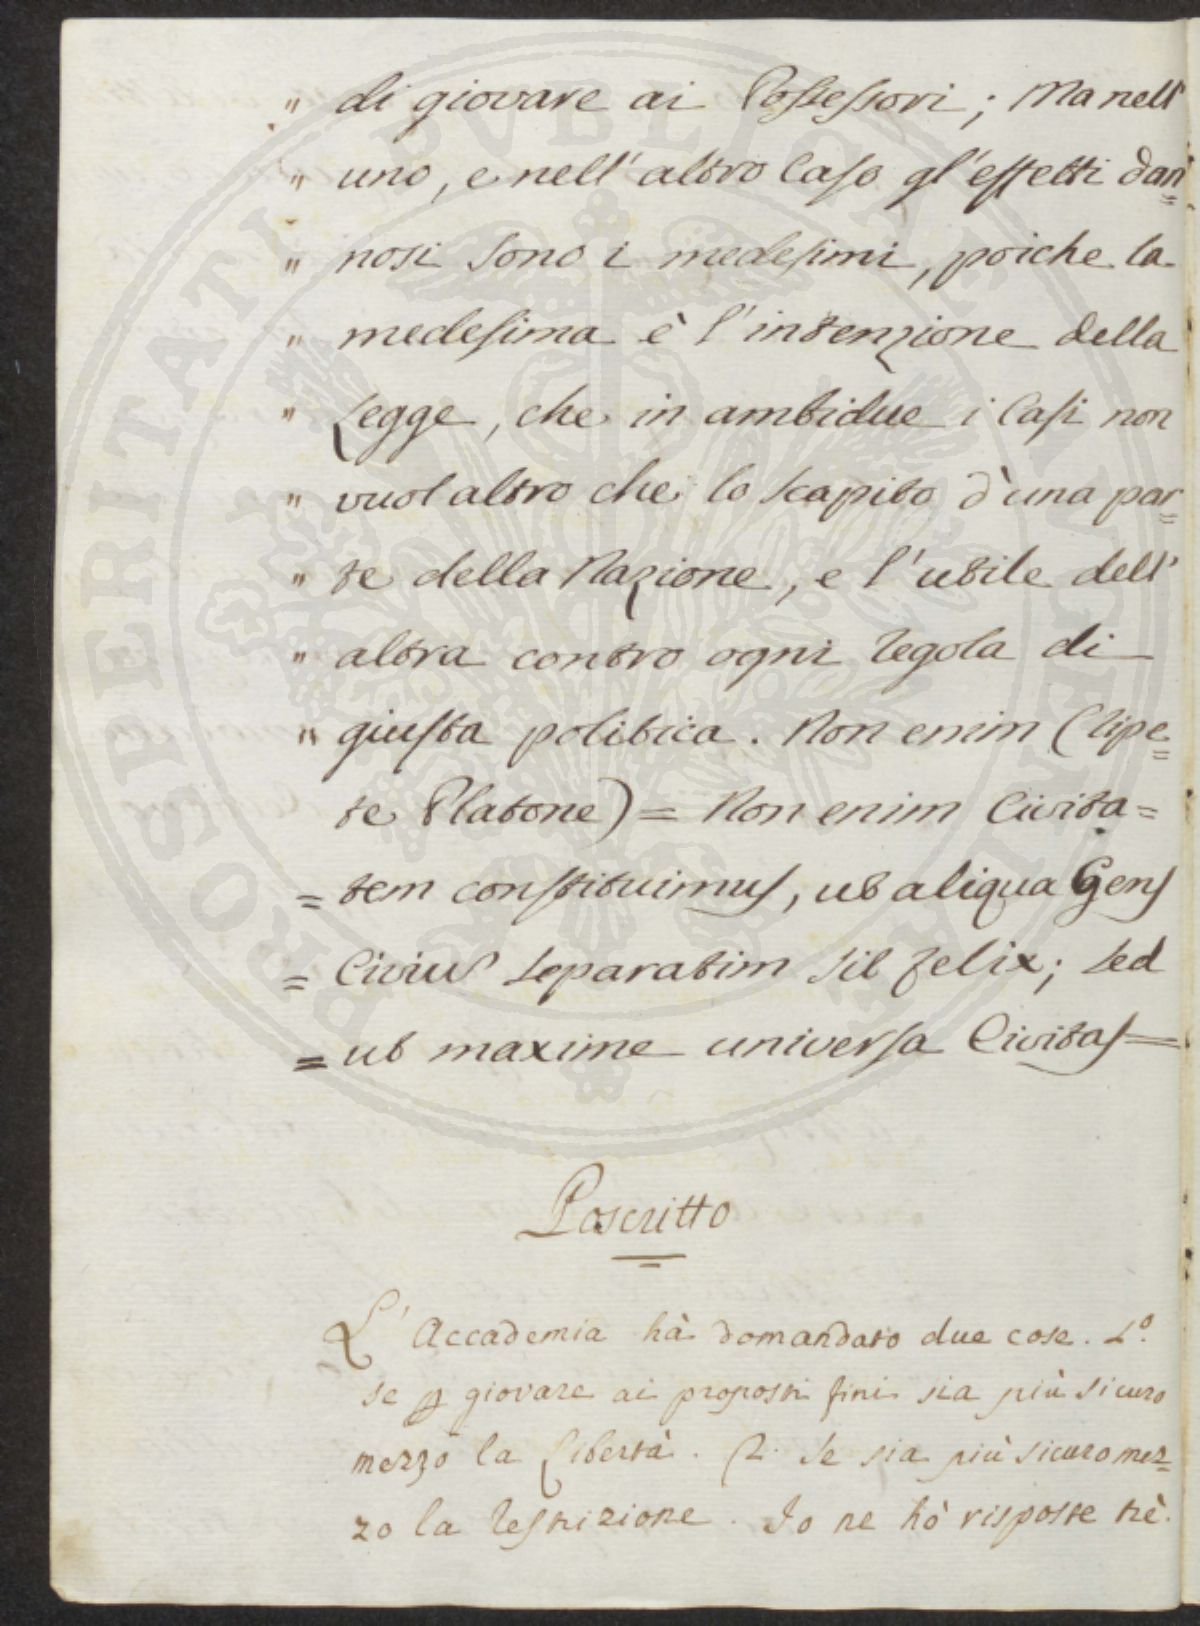 " di giovare ai Possessori; Ma nell'
" uno, e nell'altro Caso gl'effetti dan=
" nosi sono i medesimi, poiche la
" medesima è l'intenzione della
" Legge, che in ambidue i Casi non
" vuol altro che lo scapito d'una par=
" te della Nazione, e l'utile dell'
" altra contro ogni regola di
" giusta politica. Non enim (ripe=
te Platone) = Non enim Civita=
= tem constituimus, ut aliqua Gens
= Civius separatim sit felix; sed
= ut maxime universa Civitas =
Poscritto
L'Accademia hà domandato due cose. 1.º
se p giovare ai proposti fini sia più sicuro
mezzo la Libertà. 2. Se sia più sicuro mez=
zo la restrizione. Io ne hò risposte trè.
PROSPERITATI PVBLICAE AVGENDAE